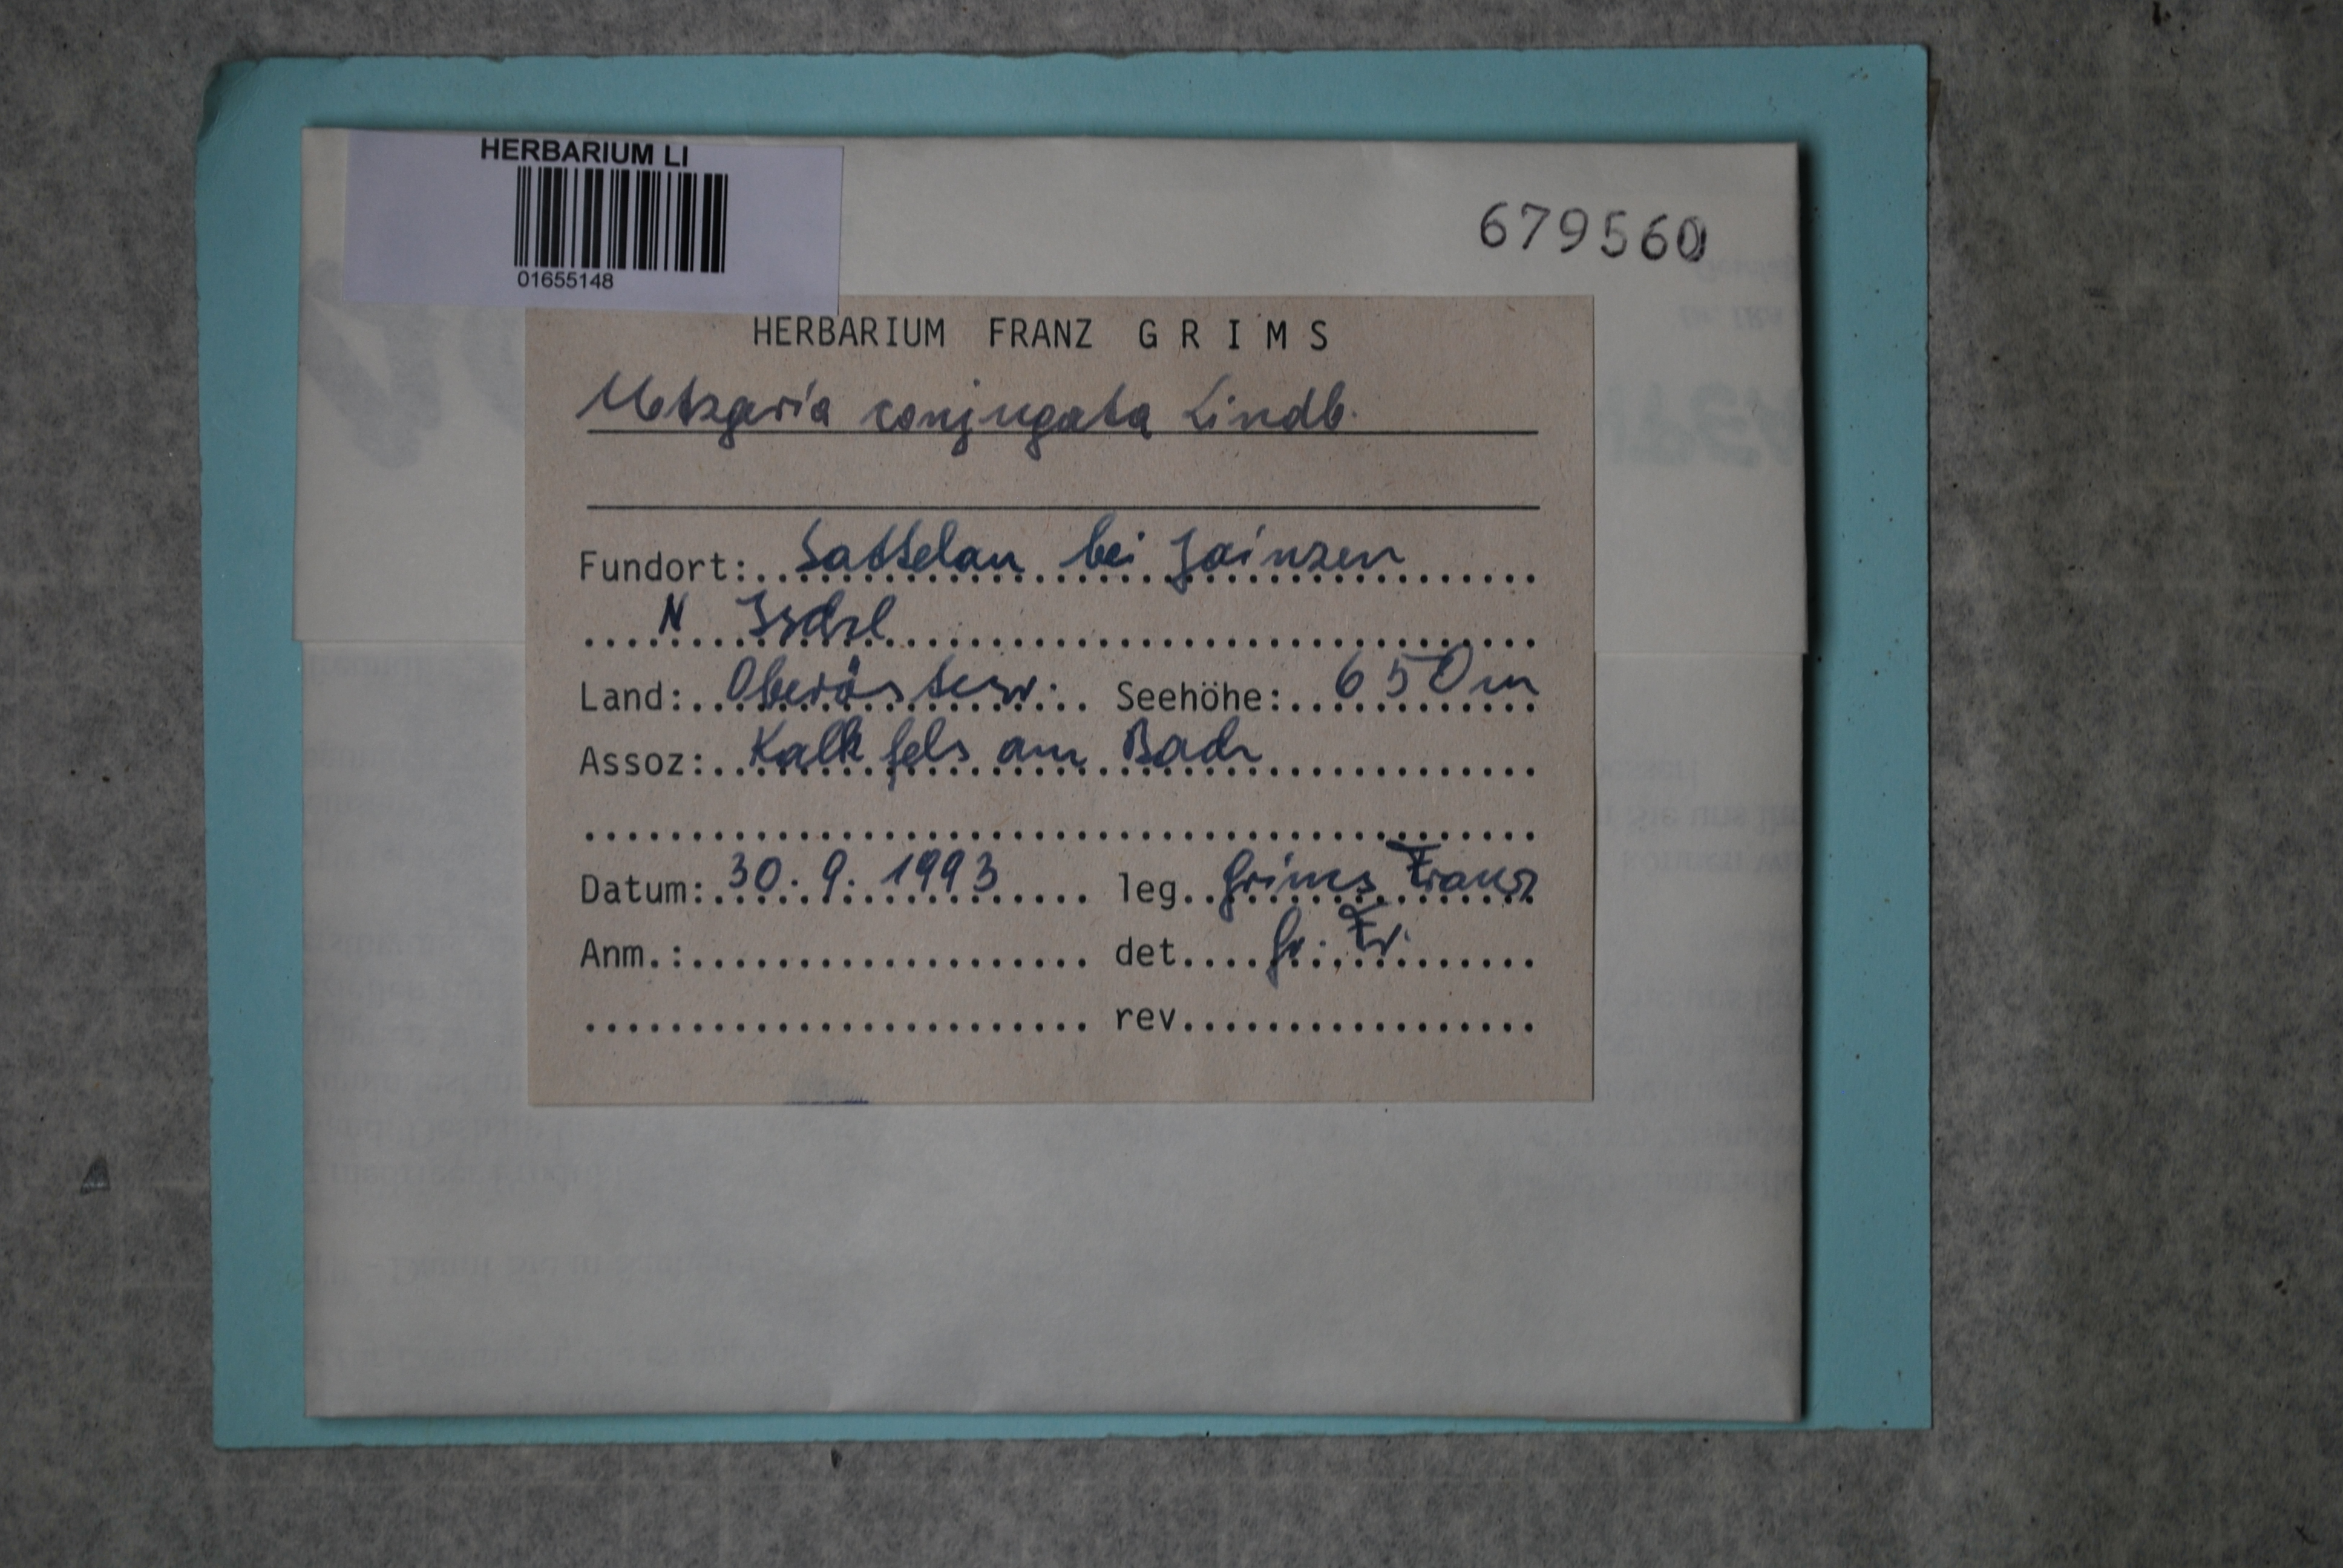 HERBARIUM LI
01655148
679560
HERBARIUM FRANZ GRIMS
Metzgeria conjugata Lindb.
Fundort: Sattelau bei Jainzen
N Ischl
Land: Oberösterr. Seehöhe: 650 m
Assoz: Kalkfels am Bach
Datum: 30.9.1993 leg. Grims Franz
Anm.: det. Gr. Fr.
rev.